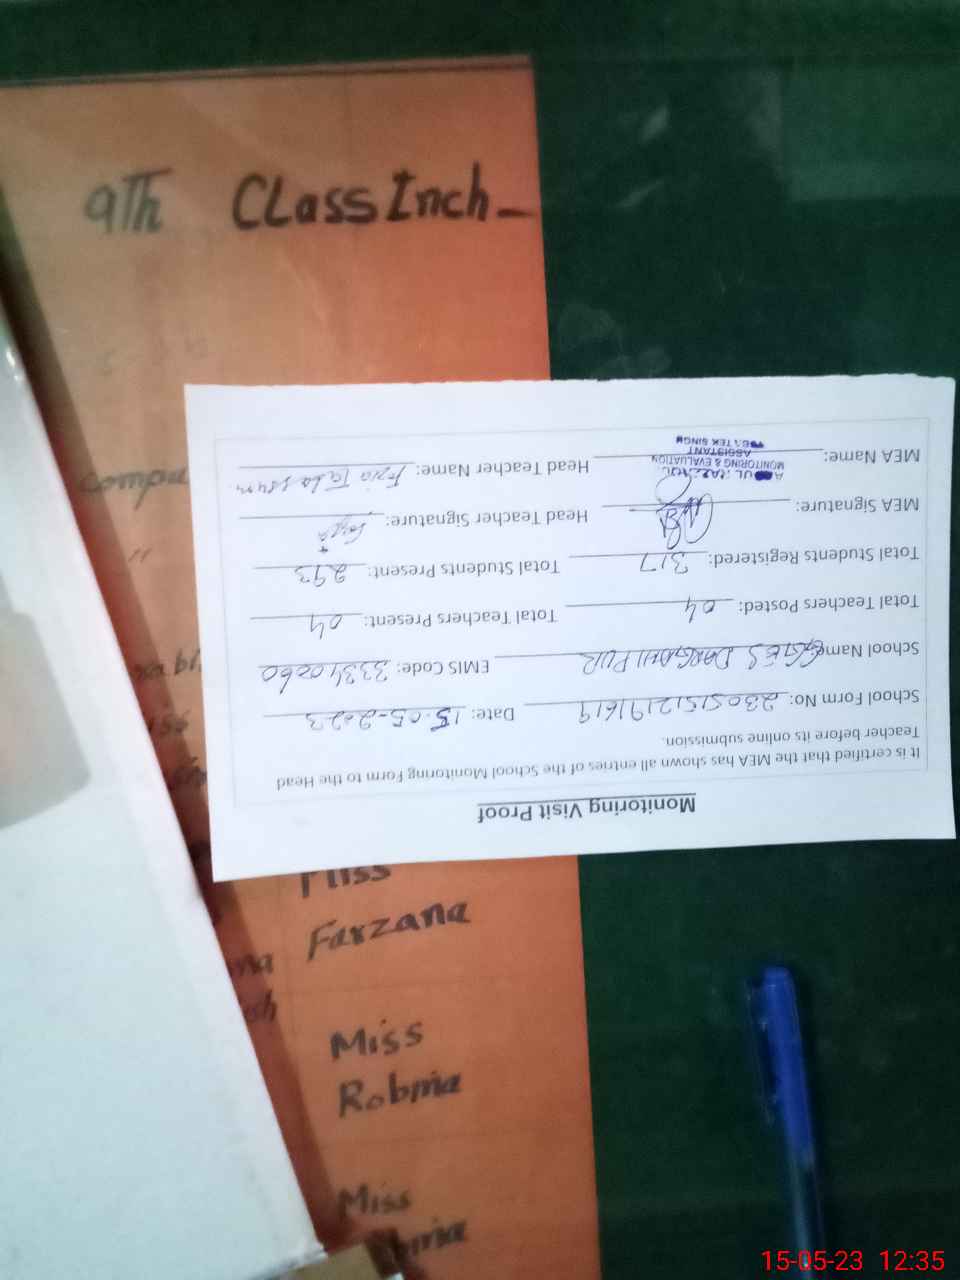 9Th Class Inch_
compu
Monitoring Visit Proof
It is certified that the MEA has shown all entries of the School Monitoring Form to the Head
Teacher before its online submission.
School Form No: 23051512191619 Date: 15-05-2023
School Name: GGES DARGAHI PUR EMIS Code: 33340260
Total Teachers Posted: 04 Total Teachers Present: 04
Total Students Registered: 317 Total Students Present: 293
MEA Signature: Head Teacher Signature:
MEA Name: Head Teacher Name: Fozia Tabassum
MONITORING & EVALUATION
ASSISTANT
TEK SINGH
Miss
Farzana
Miss
Robina
Miss
15-05-23 12:35